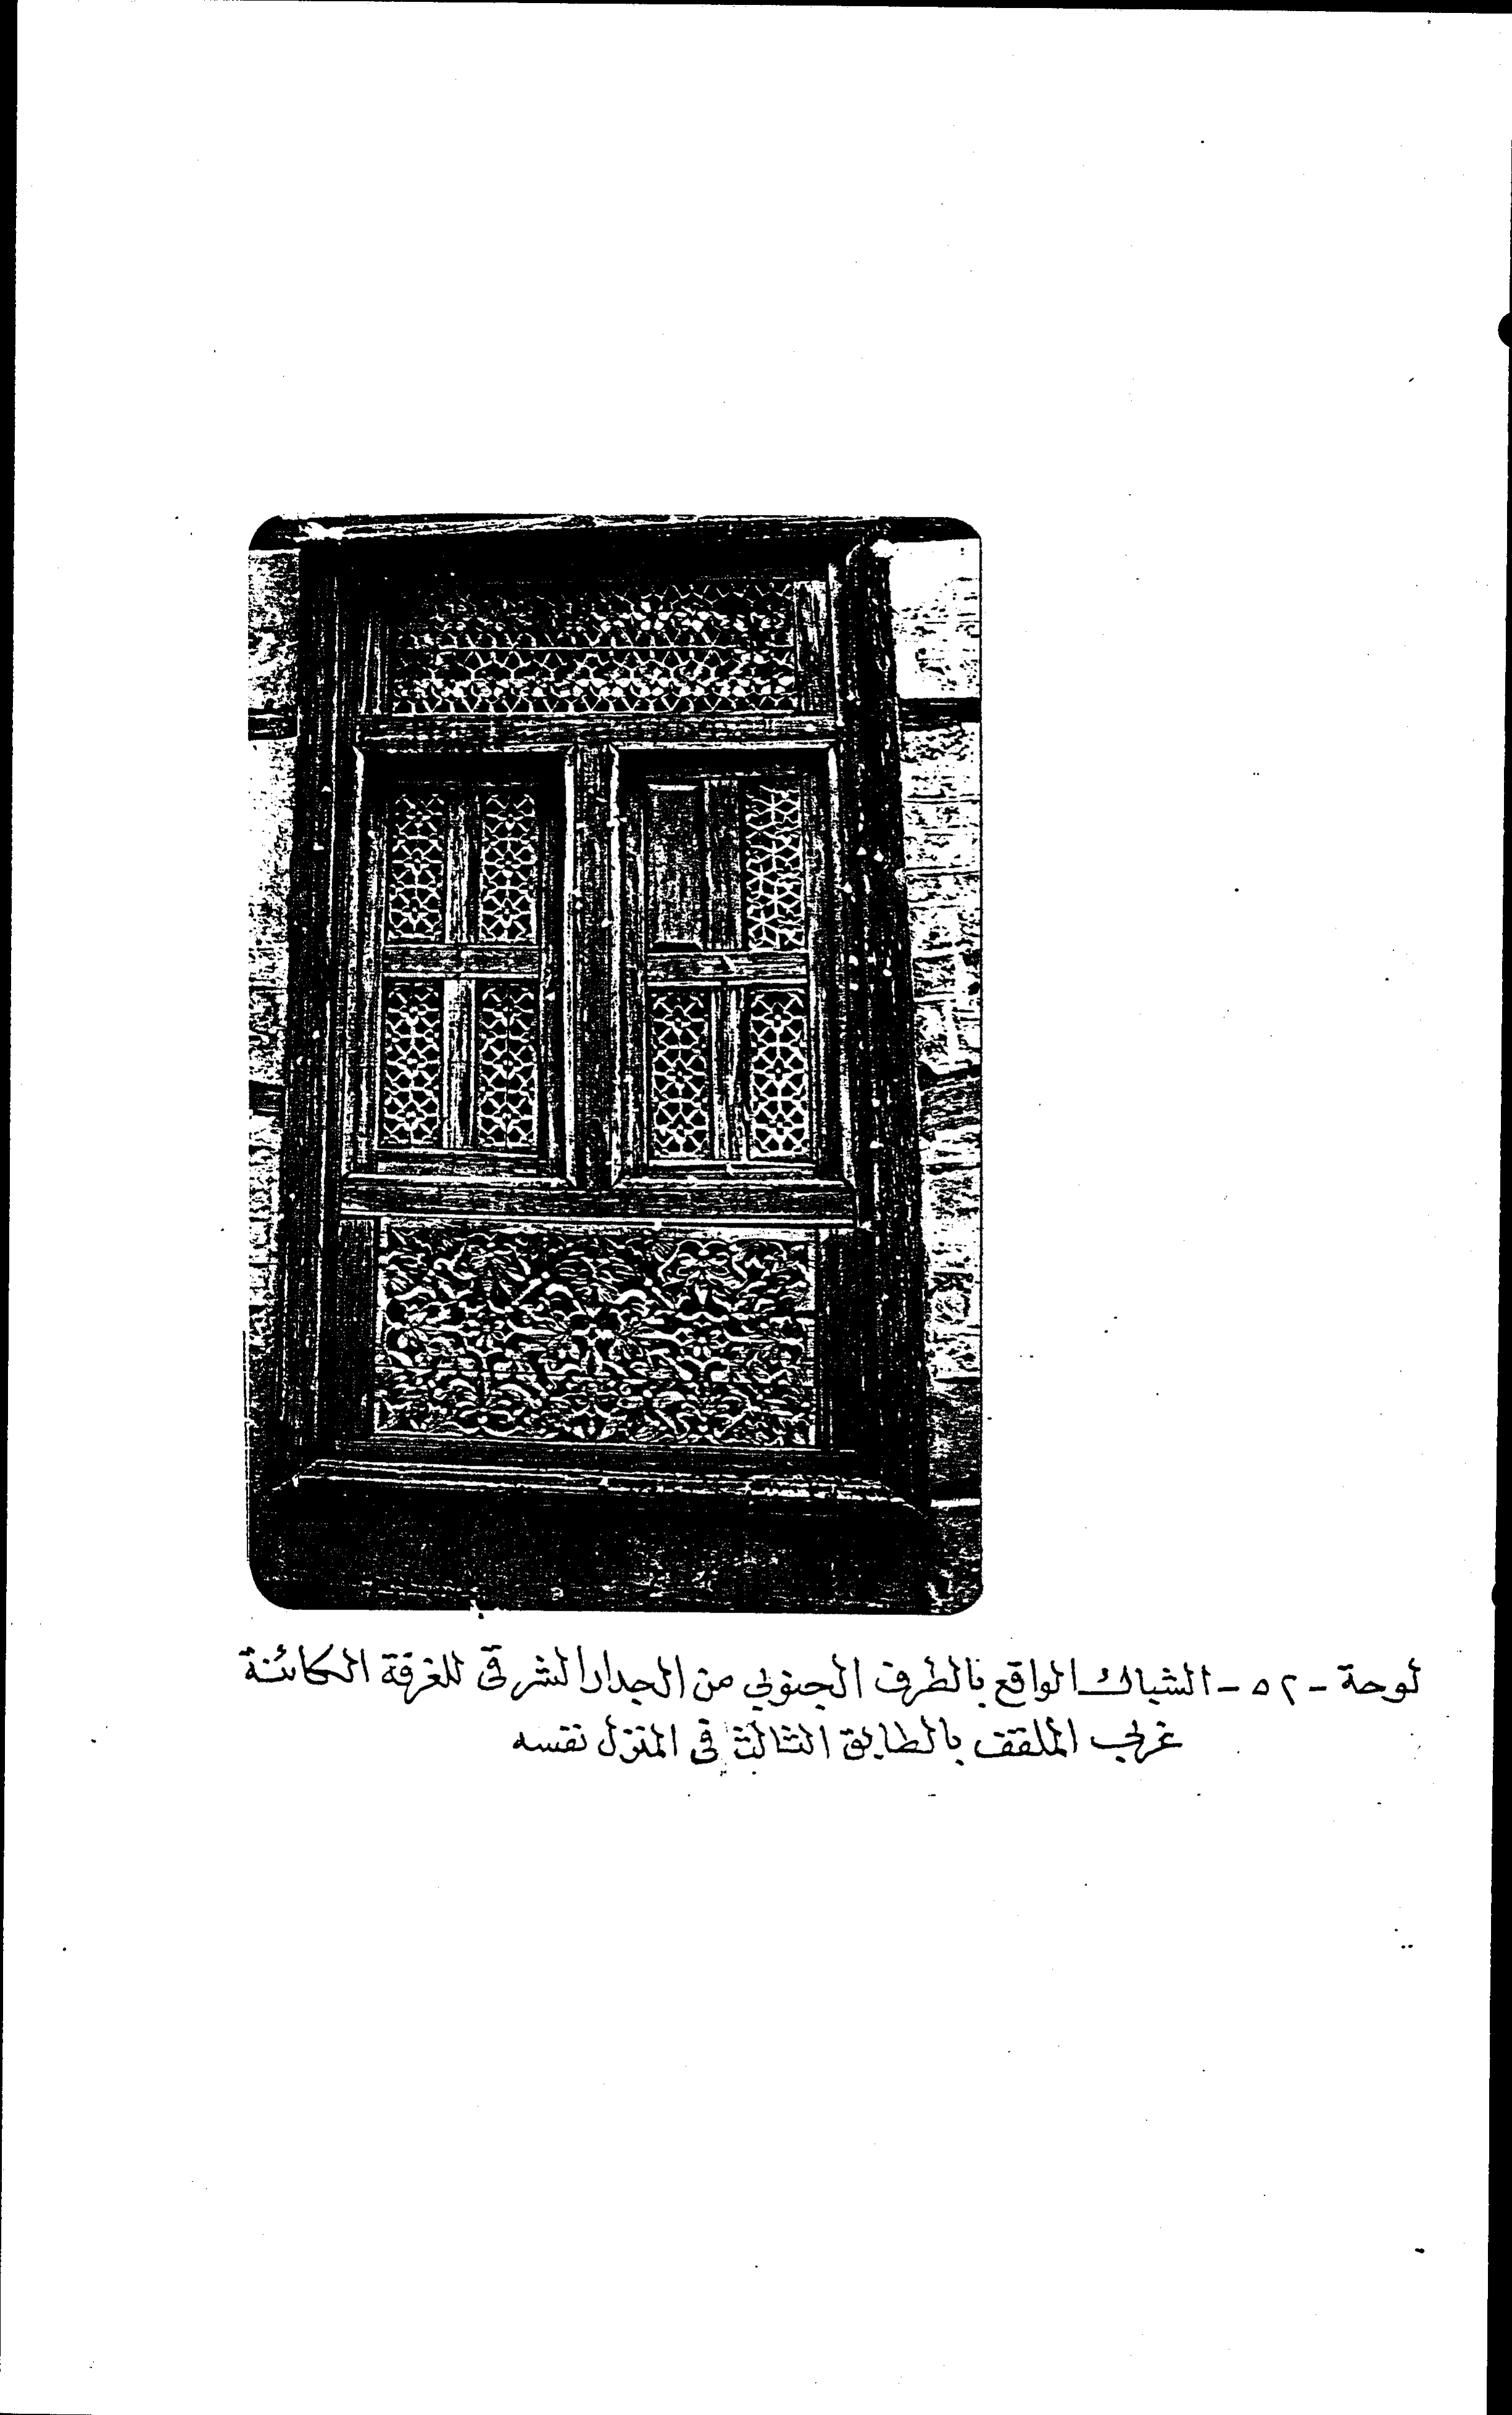 لوحة - ٥٢ - الشباك الواقع بالطرف الجنوبي من الجدار الشرقى للغرفة الكائنة
غربي الملقف بالطابق الثالث فى المنزل نفسه